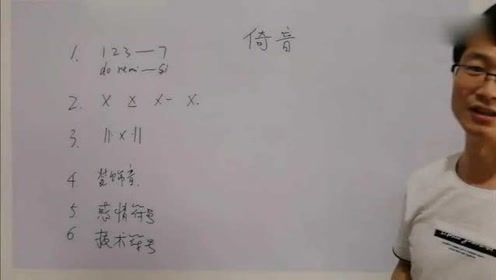 倚音
1. 1 2 3 — 7
do re mi — si
2. X X X- X.
3. ||: X :||
4 装饰音
5 感情符号
6 技术符号